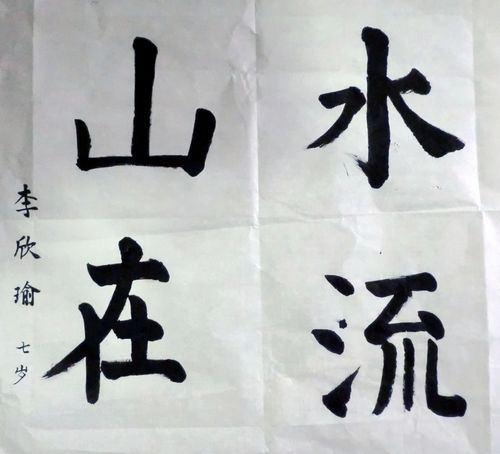 水流
山在
李欣瑜 七岁